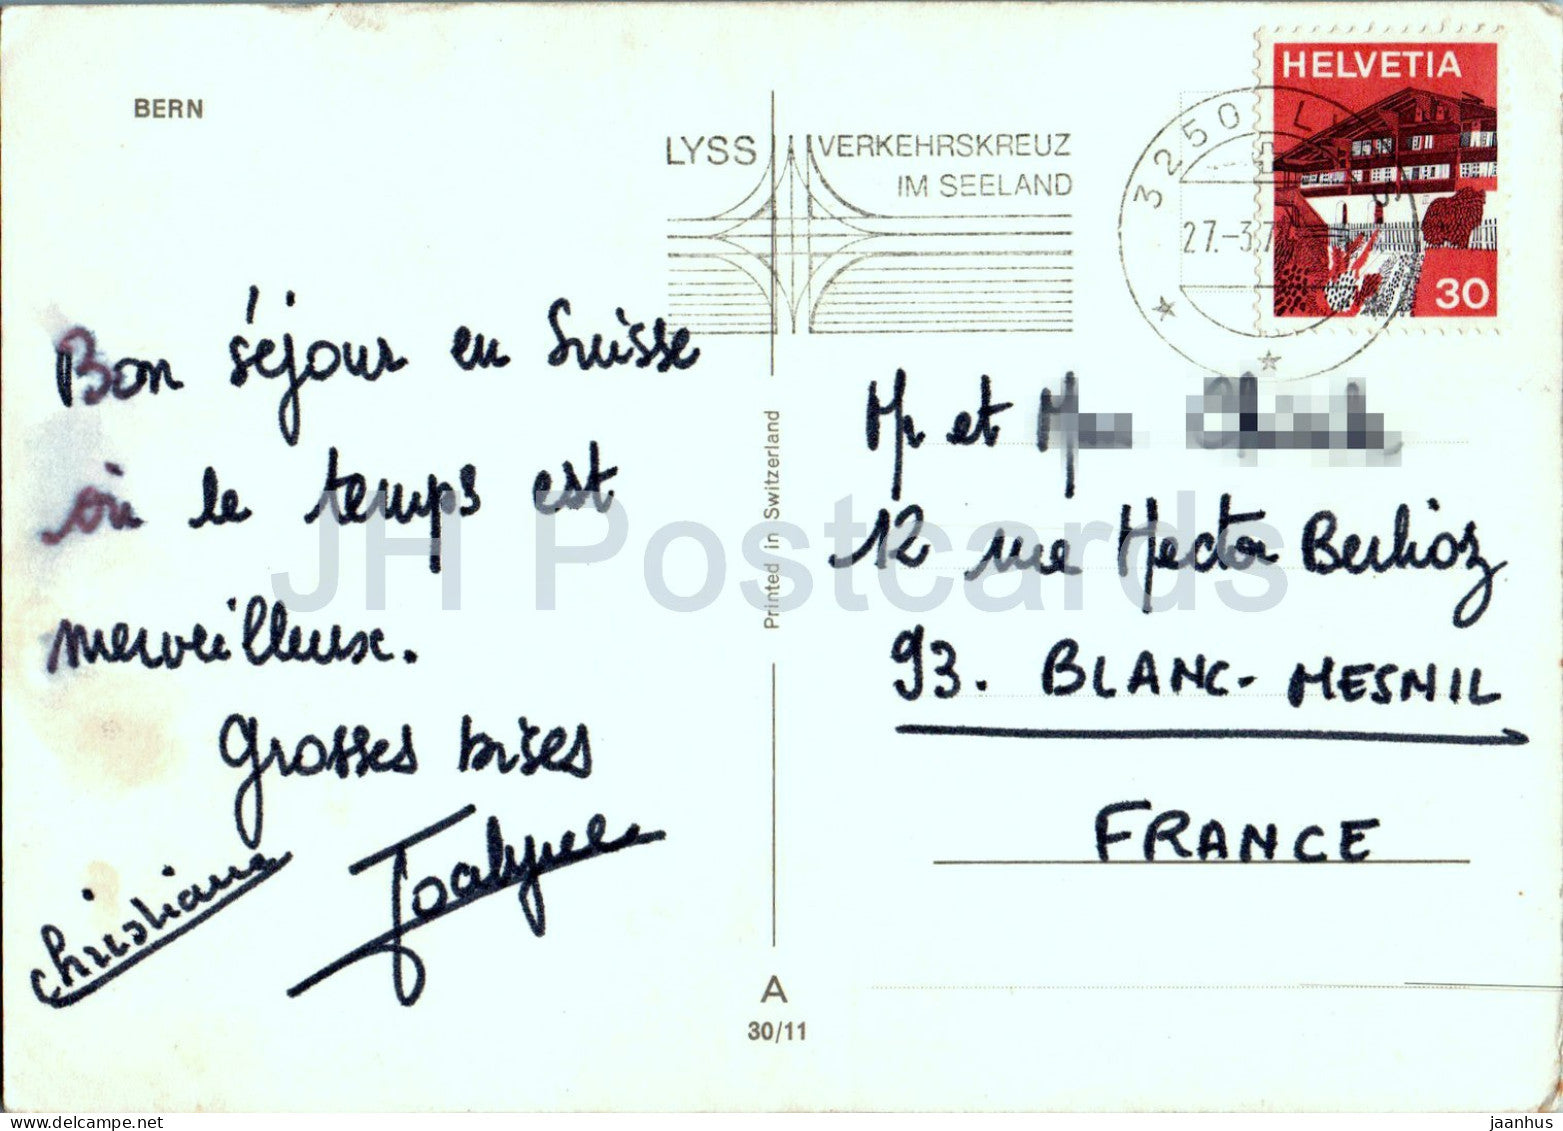 BERN
LYSS VERKEHRSKREUZ
IM SEELAND
3250 LYSS
27.-3.7
HELVETIA
30
Bon séjour en Suisse
où le temps est
merveilleux.
Grosses bises
Christiane
Joalyne
Mr et
12 rue Hector Berlioz
93. BLANC-MESNIL
FRANCE
Printed in Switzerland
A
30/11
JH Postcards
www.delcampe.net
jaanhus